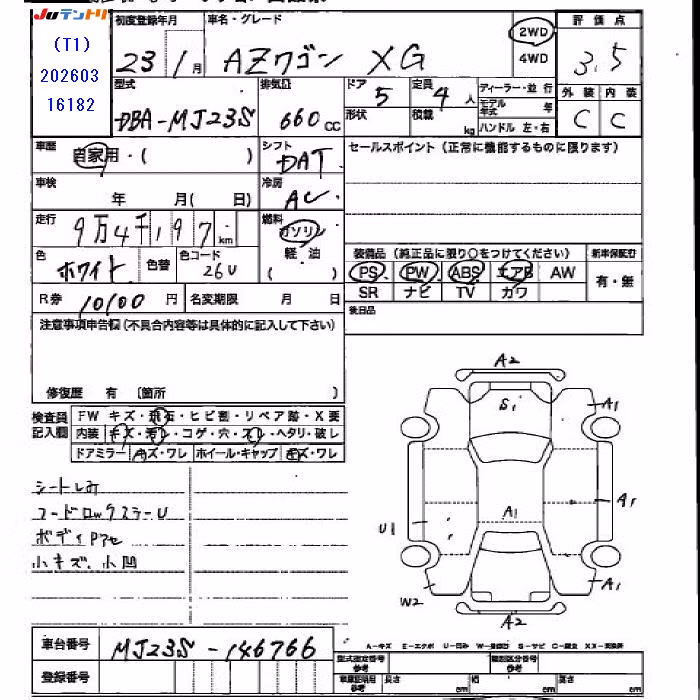 Juテントリ
(T1)
202603
16182
初度登録年月
23 / 1 月
車名・グレード
AZワゴン XG
2WD
4WD
評価点
3.5
型式
DBA-MJ23S
排気量
660 CC
ドア
5
定員
4 人
形状
積載
kg
ディーラー・並行
モデル年式 年
ハンドル 左・右
外装 内装
C C
車歴
自家用・( )
シフト
DAT
セールスポイント(正常に機能するものに限ります)
車検
年 月(日)
冷房
AC
走行
9万4千197 km
燃料
ガソリン
軽油
( )
色
ホワイト
色替
色コード
26U
装備品(純正品に限り○をつけてください)
新車保証書
PS PW ABS エアB AW
有・無
SR ナビ TV カワ
R券 10100 円
名変期限 月 日
後日品
注意事項申告欄(不具合内容等は具体的に記入して下さい)
修復歴 有 〔箇所 〕
検査員
記入欄
FW キズ・飛石・ヒビ割・リペア跡・X要
内装 キズ・汚レ・コゲ・穴・スレ・ヘタリ・破レ
ドアミラー キズ・ワレ ホイール・キャップ キズ・ワレ
シートしみ
ボディPアセ
小キズ、小凹
A2
S1
A1
A1
A1
U1
W2
A1
A2
車台番号
MJ23S-146766
A-キズ E-エクボ U-凹み W-補修跡 S-サビ C-腐食 XX-交換済
登録番号
型式指定番号
参考
類別区分番号
参考
車庫証明用
参考
長さ cm
幅 cm
高さ cm